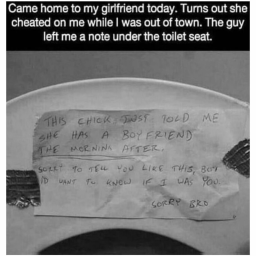 Came home to my girlfriend today. Turns out she
cheated on me while I was out of town. The guy
left me a note under the toilet seat.
THIS CHICK JUST TOLD ME
SHE HAS A BOYFRIEND
THE MORNING AFTER.
SORRY TO TELL YOU LIKE THIS, BUT
I'D WANT TO KNOW IF I WAS YOU.
SORRY BRO